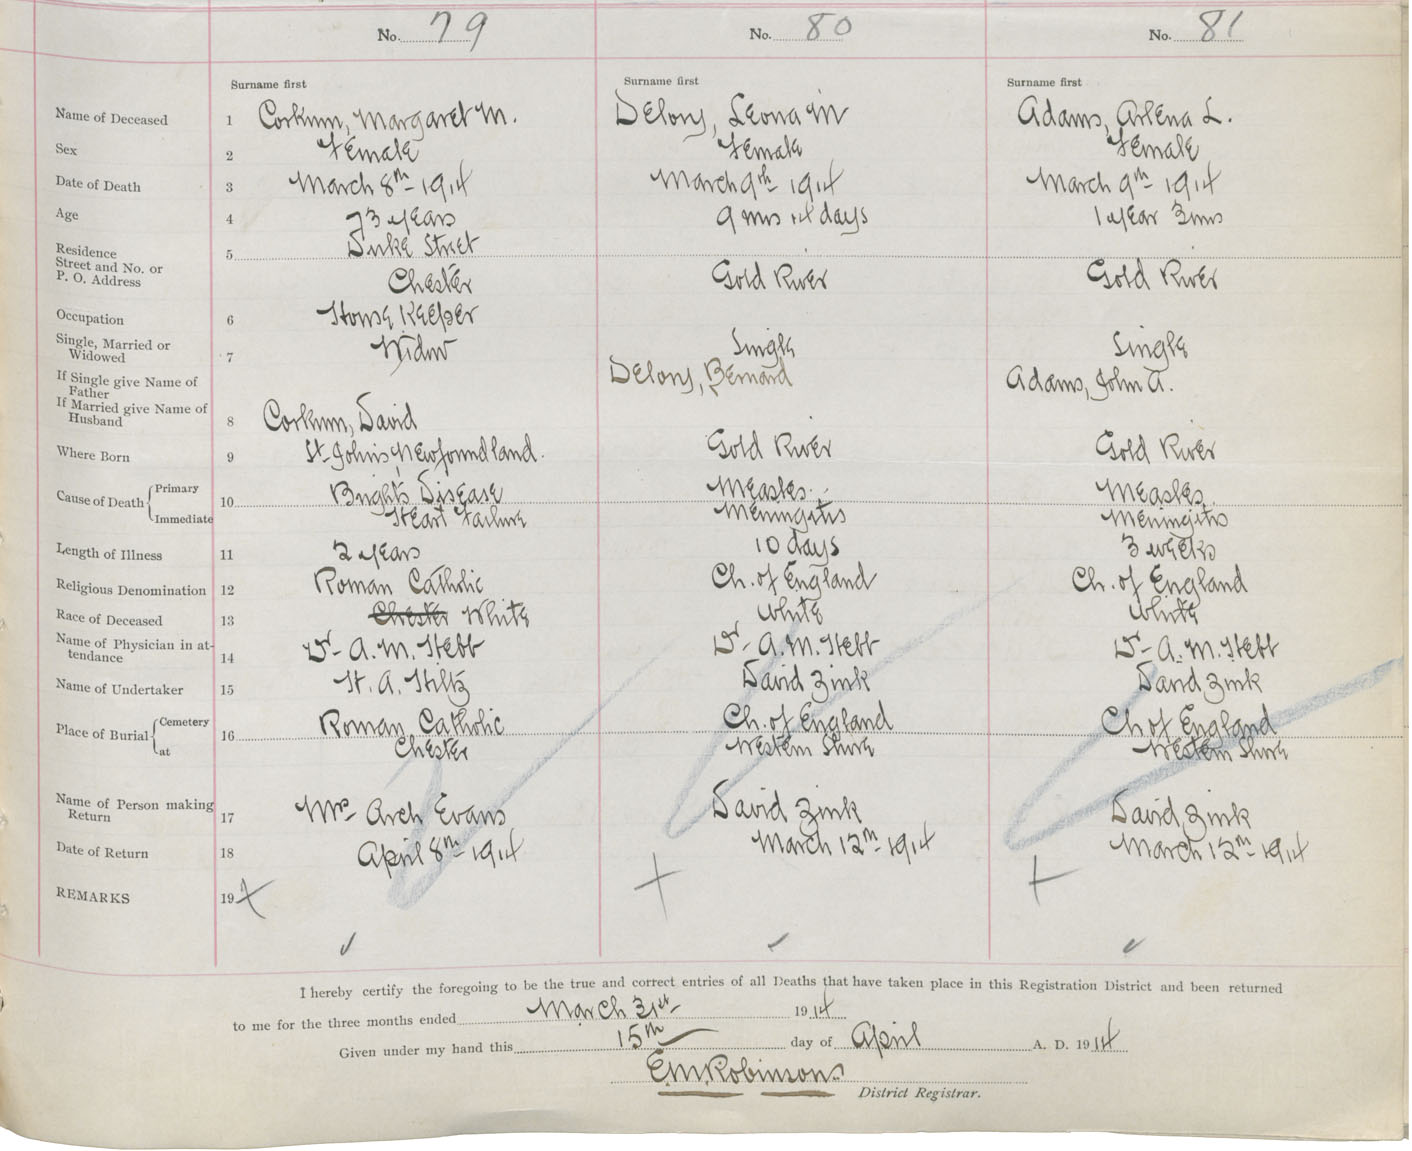 No. 79 No. 80 No. 81
Surname first Surname first Surname first
Name of Deceased 1 Corkum, Margaret M. Delory, Leona M Adams, Arlena L.
Sex 2 Female Female Female
Date of Death 3 March 8th 1914 March 9th 1914 March 9th 1914
Age 4 73 years 9 mos 14 days 1 year 3 mos
Residence 5 Duke Street
Street and No. or
P. O. Address Chester Gold River Gold River
Occupation 6 House Keeper
Single, Married or
Widowed 7 Widow Single Single
If Single give Name of
Father Delory, Bernard Adams, John A.
If Married give Name of
Husband 8 Corkum, David
Where Born 9 St. Johns Newfoundland. Gold River Gold River
Cause of Death Primary 10 Brights Disease Measles. Measles.
Immediate Heart Failure Meningitis Meningitis
Length of Illness 11 2 years 10 days 3 weeks
Religious Denomination 12 Roman Catholic Ch. of England Ch. of England
Race of Deceased 13 Chester White White White
Name of Physician in at-
tendance 14 Dr A. M. Hebb Dr A. M. Hebb Dr A. M. Hebb
Name of Undertaker 15 H. A. Hiltz David Zink David Zink
Place of Burial Cemetery 16 Roman Catholic Ch. of England Ch of England
at Chester Western Shore Western Shore
Name of Person making
Return 17 Mrs Arch Evans David Zink David Zink
Date of Return 18 April 8th 1914 March 12th 1914 March 12th 1914
REMARKS 19
I hereby certify the foregoing to be the true and correct entries of all Deaths that have taken place in this Registration District and been returned
to me for the three months ended March 31st 1914
Given under my hand this 15th day of April A. D. 1914
E.M. Robinson
District Registrar.